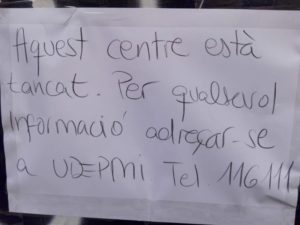 Aquest centre està
tancat. Per qualsevol
Informació adreçar-se
a UDEPMI Tel. 116111